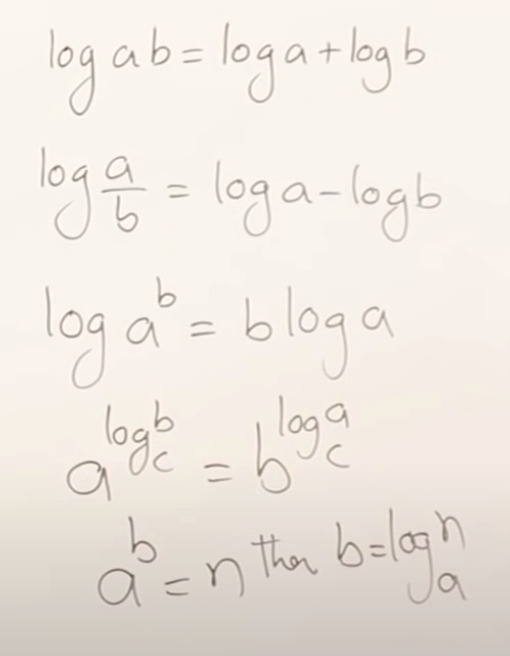 log ab = log a + log b
log a/b = log a - log b
log a^b = b log a
a^(log_c b) = b^(log_c a)
a^b = n then b = log_a n